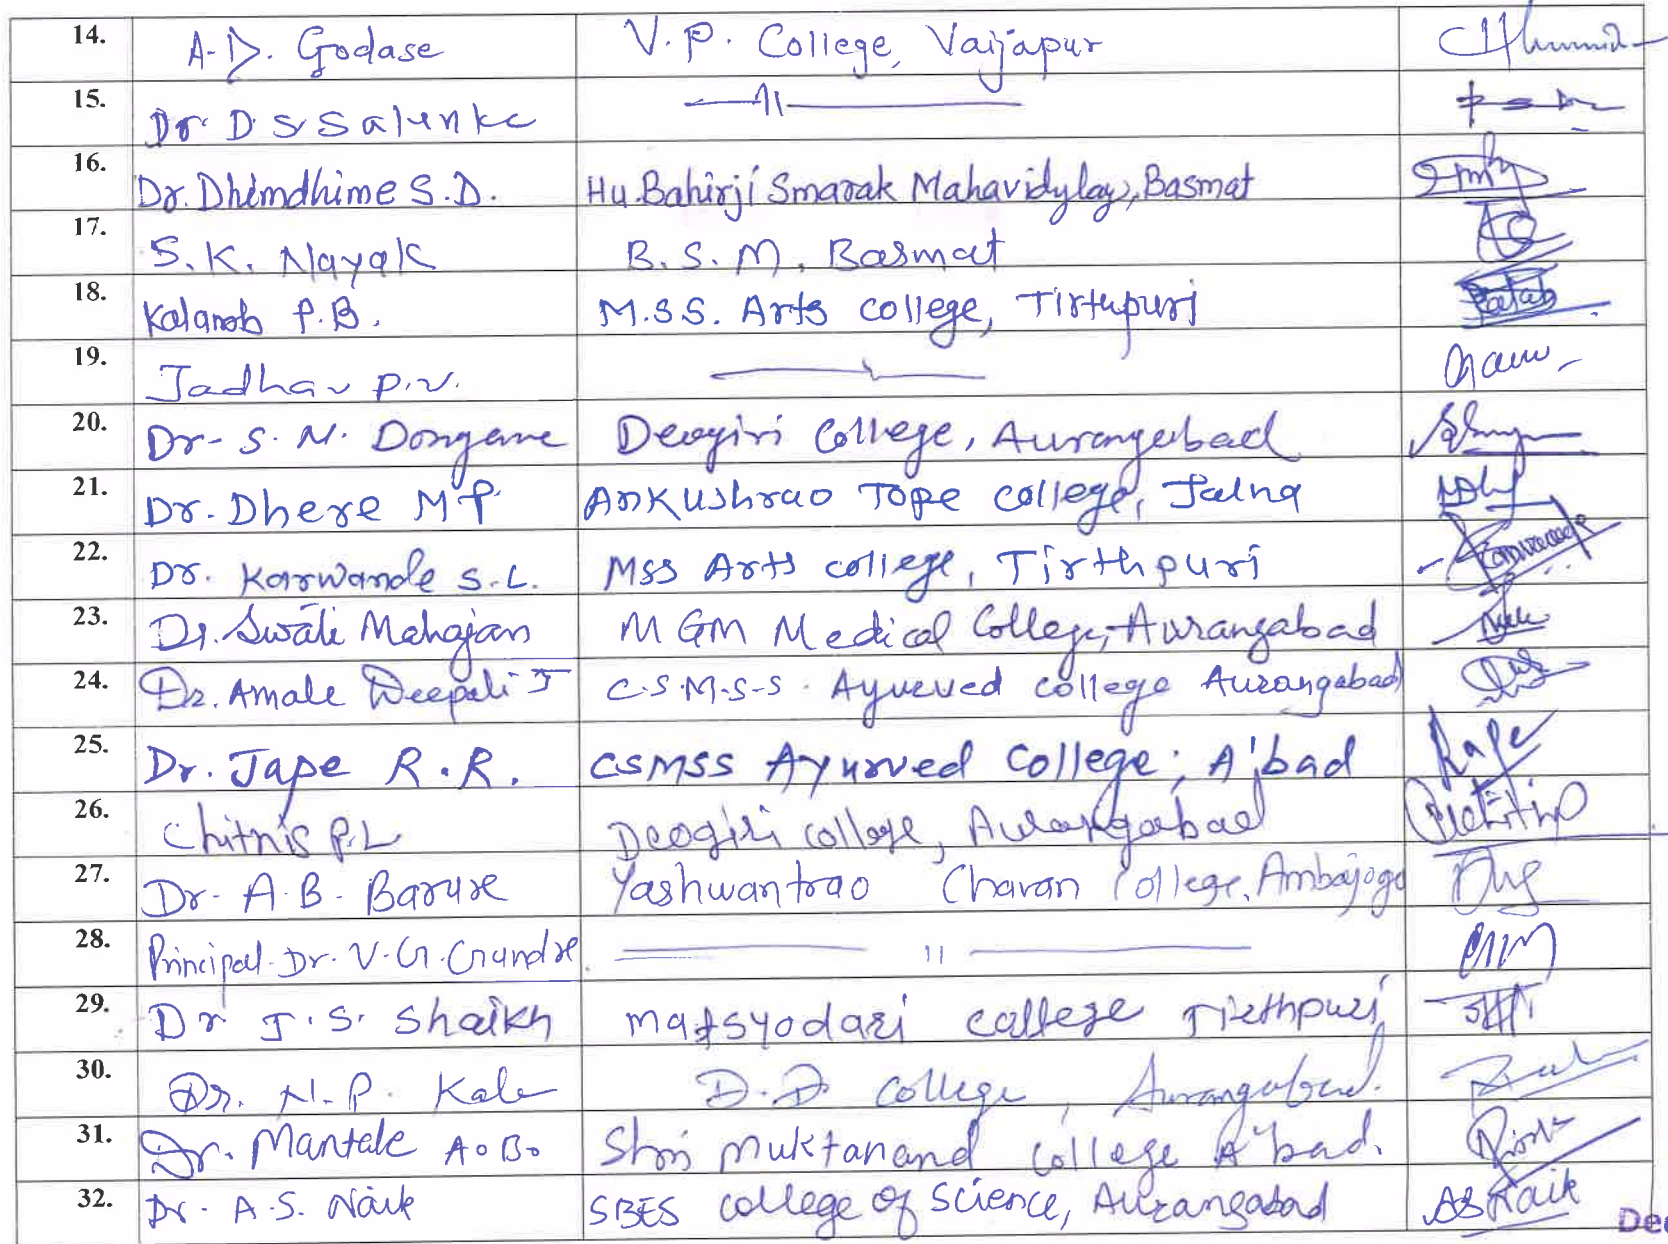 14. A.D. Godase V.P. College, Vaijapur
15. Dr. D S Salunke —11—
16. Dr. Dhimdhime S.D. Hu. Bahirji Smarak Mahavidylay, Basmat
17. S.K. Nayak B.S.M. Basmat
18. Kalamb P.B. M.S.S. Arts College, Tirthpuri
19. Jadhav P.V.
20. Dr. S.N. Dongare Deogiri College, Aurangabad
21. Dr. Dhere M P. Ankushrao Tope College, Jalna
22. Dr. Karwande S.L. MSS Arts college, Tirthpuri
23. Dr. Swati Mahajan MGM Medical College, Aurangabad
24. Dr. Amale Deepali J C.S.M.S.S. Ayurved college Aurangabad
25. Dr. Jape R.R. CSMSS Ayurved College, A'bad
26. Chitnis P.L Deogiri college, Aurangabad
27. Dr. A.B. Barure Yashwantrao Chavan College, Ambajoga
28. Principal Dr. V.G. Gundre —11—
29. Dr J.S. Shaikh matsyodari college Tirthpuri
30. Dr. N.P. Kale D.D. College, Aurangabad.
31. Dr. Mantale A.B. Shri Muktanand College A'bad.
32. Dr. A.S. Naik SBES College of Science, Aurangabad ASNaik
Deo